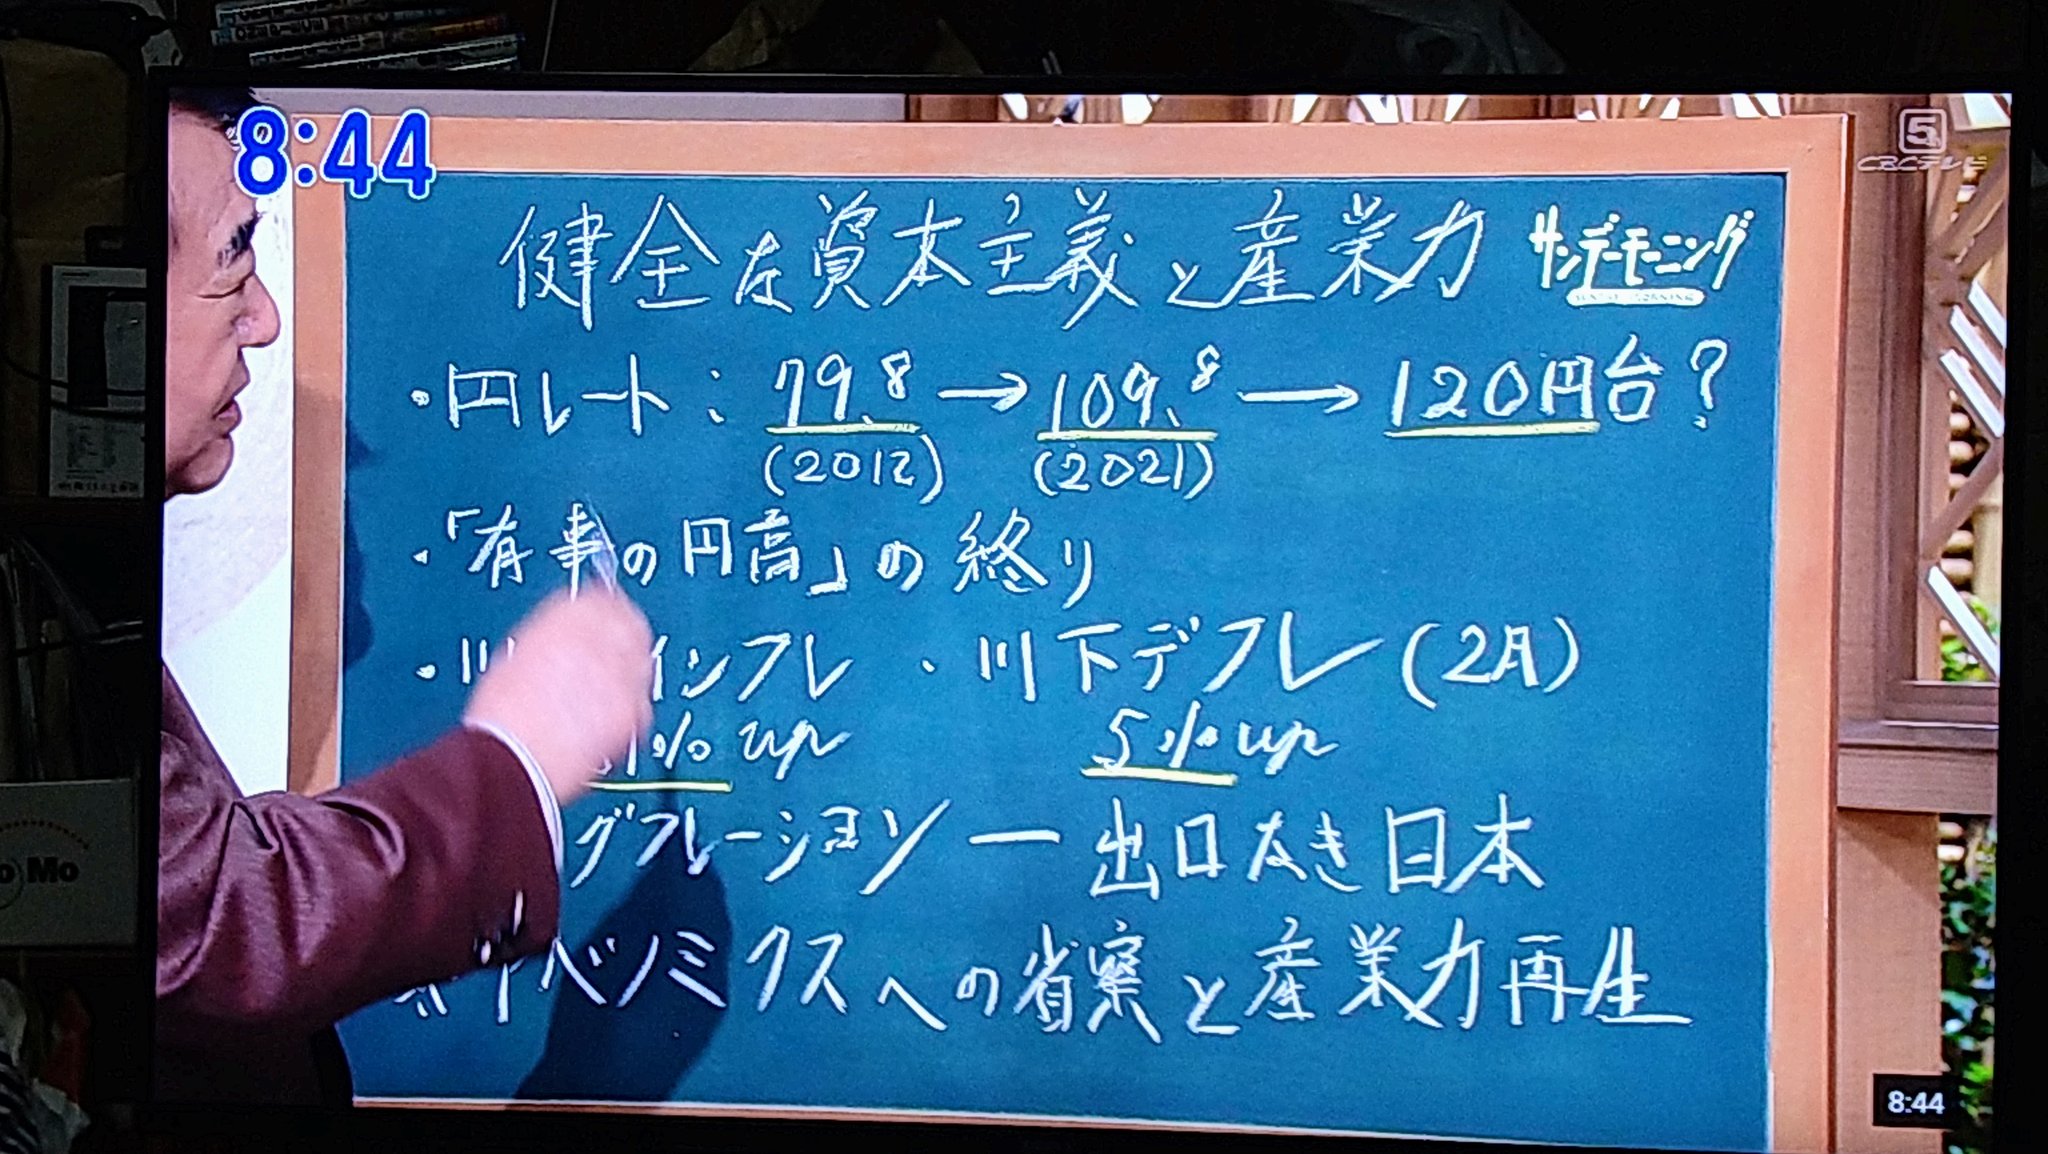 8:44
5
CBCテレビ
健全な資本主義と産業力
サンデーモーニング
・円レート：79.8→109.8→120円台？
(2012) (2021)
・「有事の円高」の終り
・川 インフレ ・川下デフレ(2月)
1% up 5% up
グフレーション ― 出口なき日本
アベノミクスへの省察と産業力再生
Mo
8:44